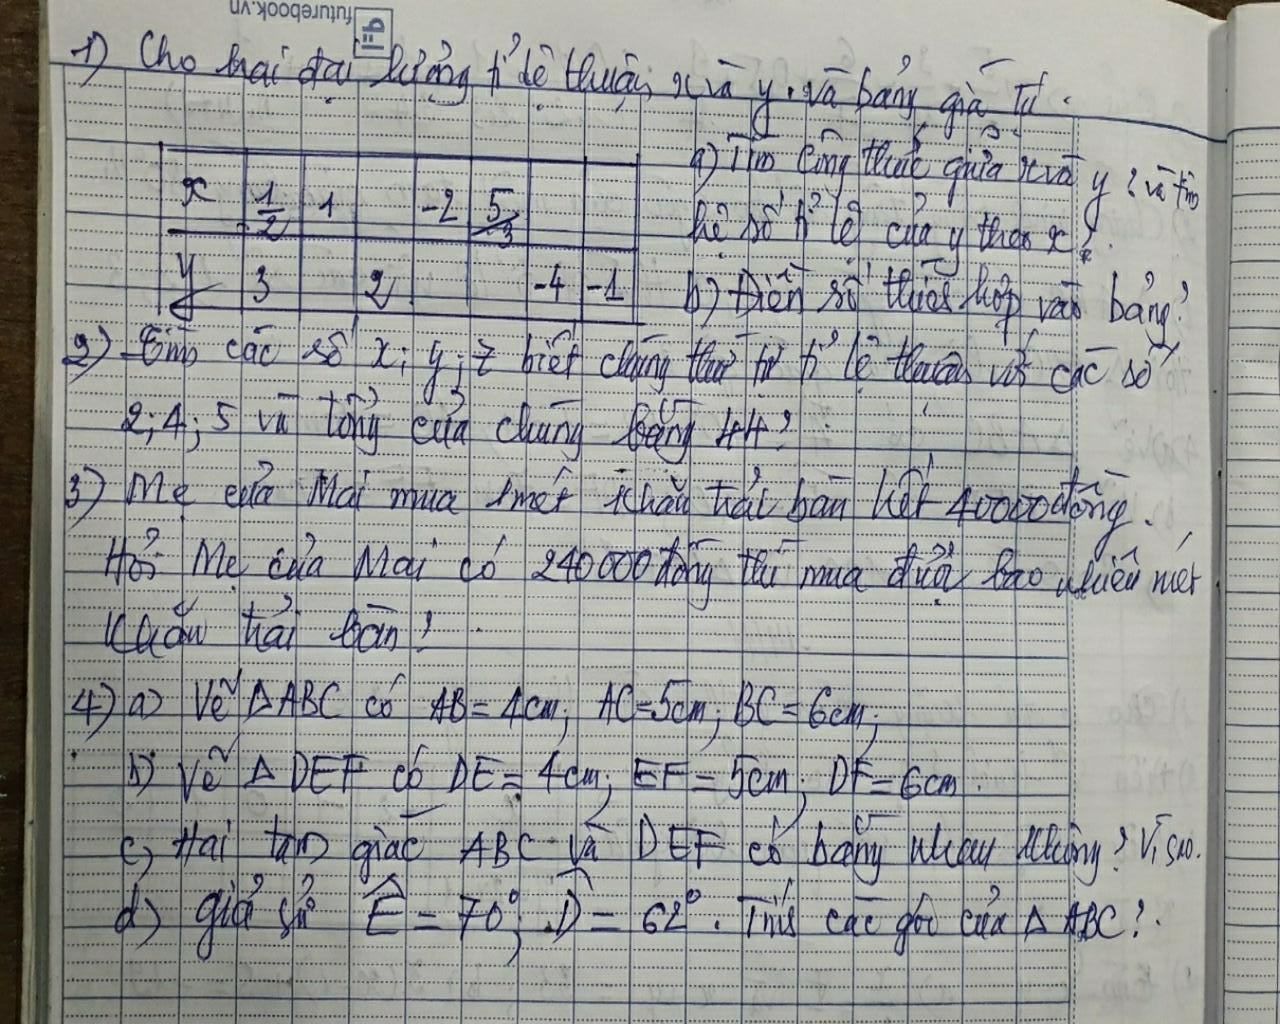 futurebook.vn
1) Cho hai đại lượng tỉ lệ thuận x và y. và bảng giá trị.
a) Tìm công thức giữa x và y? và tìm
x 1/2 1 -2 5/3
hệ số tỉ lệ của y theo x?
y 3 2 -4 -1
b) Điền số thích hợp vào bảng?
2) Tìm các số x; y; z biết chúng thứ tự tỉ lệ thuận với các số
2; 4; 5 và tổng của chúng bằng 44?
3) Mẹ của Mai mua 1 mét khăn trải bàn hết 40000 đồng.
Hỏi Mẹ của Mai có 240000 đồng thì mua được bao nhiêu mét
khăn trải bàn?
4) a) Vẽ △ABC có AB = 4cm; AC = 5cm; BC = 6cm;
b) Vẽ △ DEF có DE = 4cm; EF = 5cm; DF = 6cm.
c) Hai tam giác ABC và DEF có bằng nhau không? Vì sao.
d) giả sử Ê = 70°; D̂ = 62°. Tính các góc của △ ABC?.